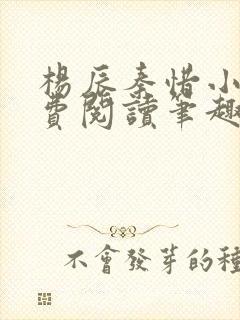 楊辰秦惜小
費閱讀筆趣
不會發芽的種